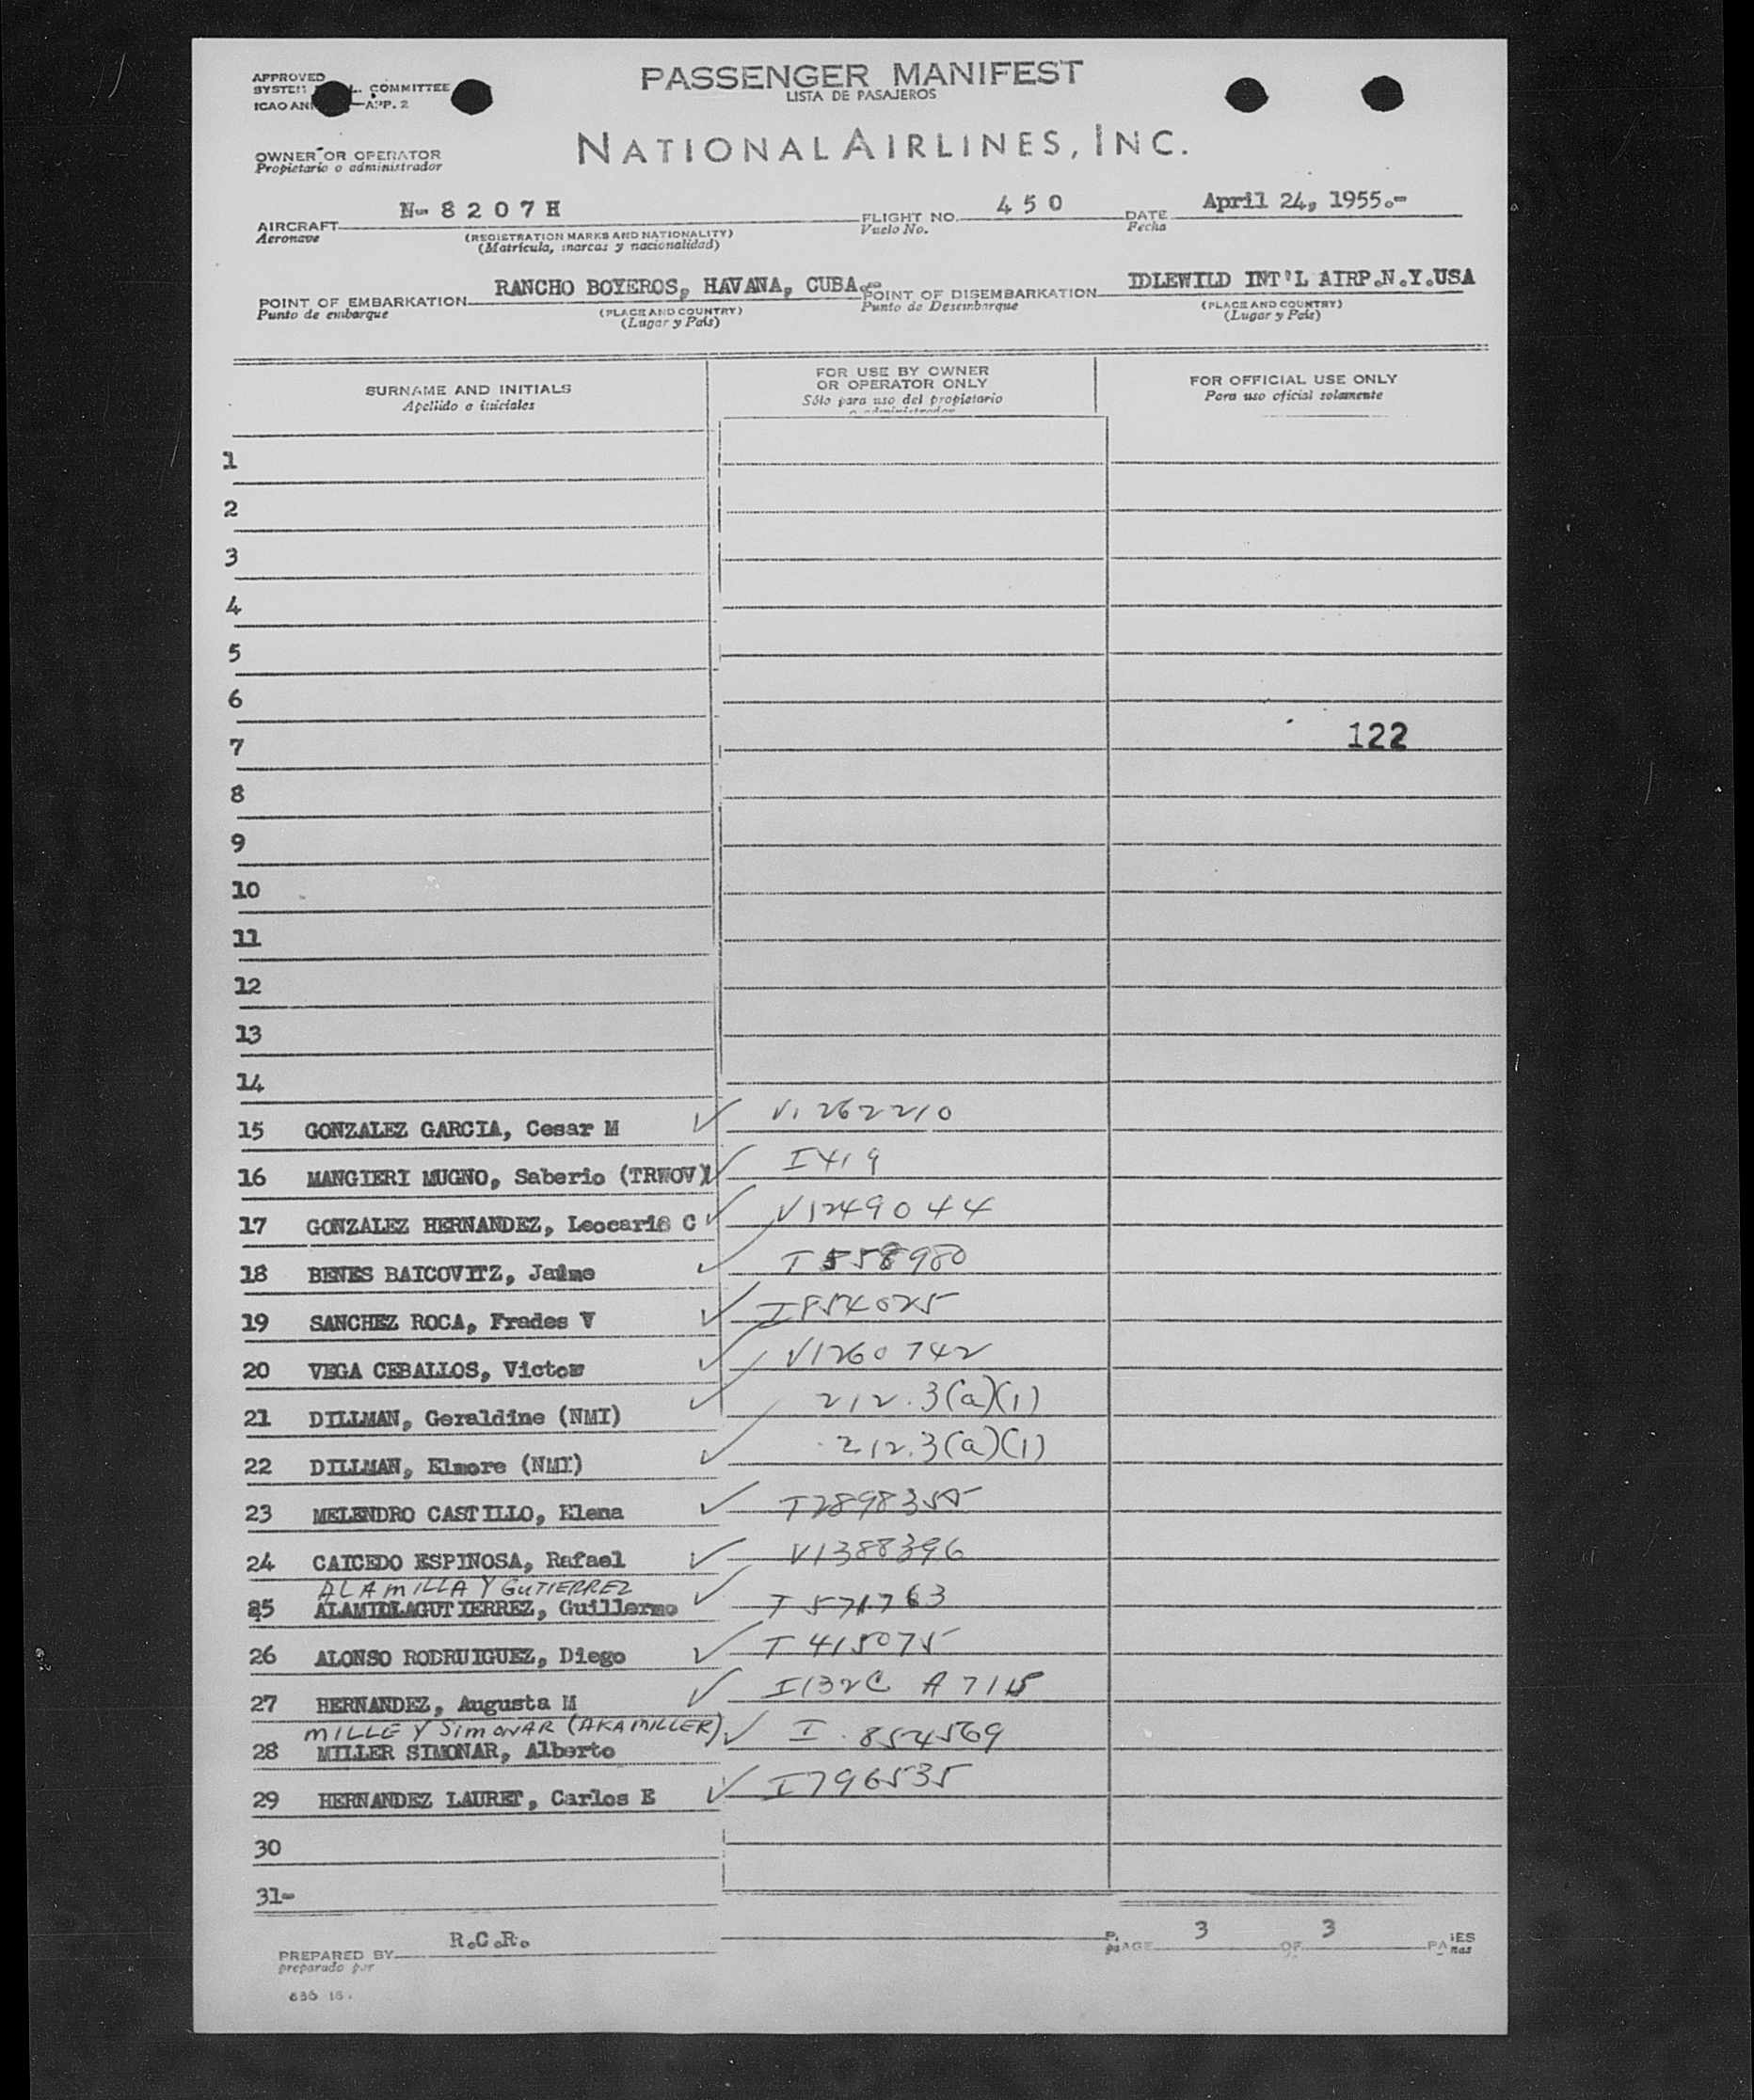 APPROVED
SYSTEM L. COMMITTEE
ICAO ANN APP. 2
PASSENGER MANIFEST
LISTA DE PASAJEROS
OWNER OR OPERATOR
Propietario o administrador
NATIONAL AIRLINES, INC.
AIRCRAFT N- 8 2 0 7 H
Aeronave
(REGISTRATION MARKS AND NATIONALITY)
(Matrícula, marcas y nacionalidad)
FLIGHT NO. 4 5 0
Vuelo No.
DATE April 24, 1955.-
Fecha
POINT OF EMBARKATION RANCHO BOYEROS, HAVANA, CUBA.-
Punto de embarque
(PLACE AND COUNTRY)
(Lugar y País)
POINT OF DISEMBARKATION IDLEWILD INT'L AIRP.N.Y.USA
Punto de Desembarque
(PLACE AND COUNTRY)
(Lugar y País)
SURNAME AND INITIALS
Apellido e iniciales
FOR USE BY OWNER
OR OPERATOR ONLY
Sólo para uso del propietario
o administrador
FOR OFFICIAL USE ONLY
Para uso oficial solamente
1
2
3
4
5
6
7 122
8
9
10
11
12
13
14
15 GONZALEZ GARCIA, Cesar M ✓ V1262210
16 MANGIERI MUGNO, Saberio (TRWOV) ✓ I419
17 GONZALEZ HERNANDEZ, Leocaris C ✓ V1249044
18 BENES BAICOVITZ, Jaime ✓ I 558980
19 SANCHEZ ROCA, Frades V ✓ I854025
20 VEGA CEBALLOS, Victor ✓ V1260742
21 DILLMAN, Geraldine (NMI) ✓ 212.3(a)(1)
22 DILLMAN, Elmore (NMI) ✓ 212.3(a)(1)
23 MELENDRO CASTILLO, Elena ✓ I2898355
24 CAICEDO ESPINOSA, Rafael ✓ V1388396
ALAMILLA Y GUTIERREZ
25 ALAMILLAGUTIERREZ, Guillermo ✓ I 571763
26 ALONSO RODRUIGUEZ, Diego ✓ I 415075
27 HERNANDEZ, Augusta M ✓ I132C A 7115
MILLE Y SIMONAR (AKA MILLER) ✓ I 854569
28 MILLER SIMONAR, Alberto
29 HERNANDEZ LAURET, Carlos E ✓ I796535
30
31-
PREPARED BY R.C.R.
preparado por
PAGE 3 OF 3 PAGES
636 16.